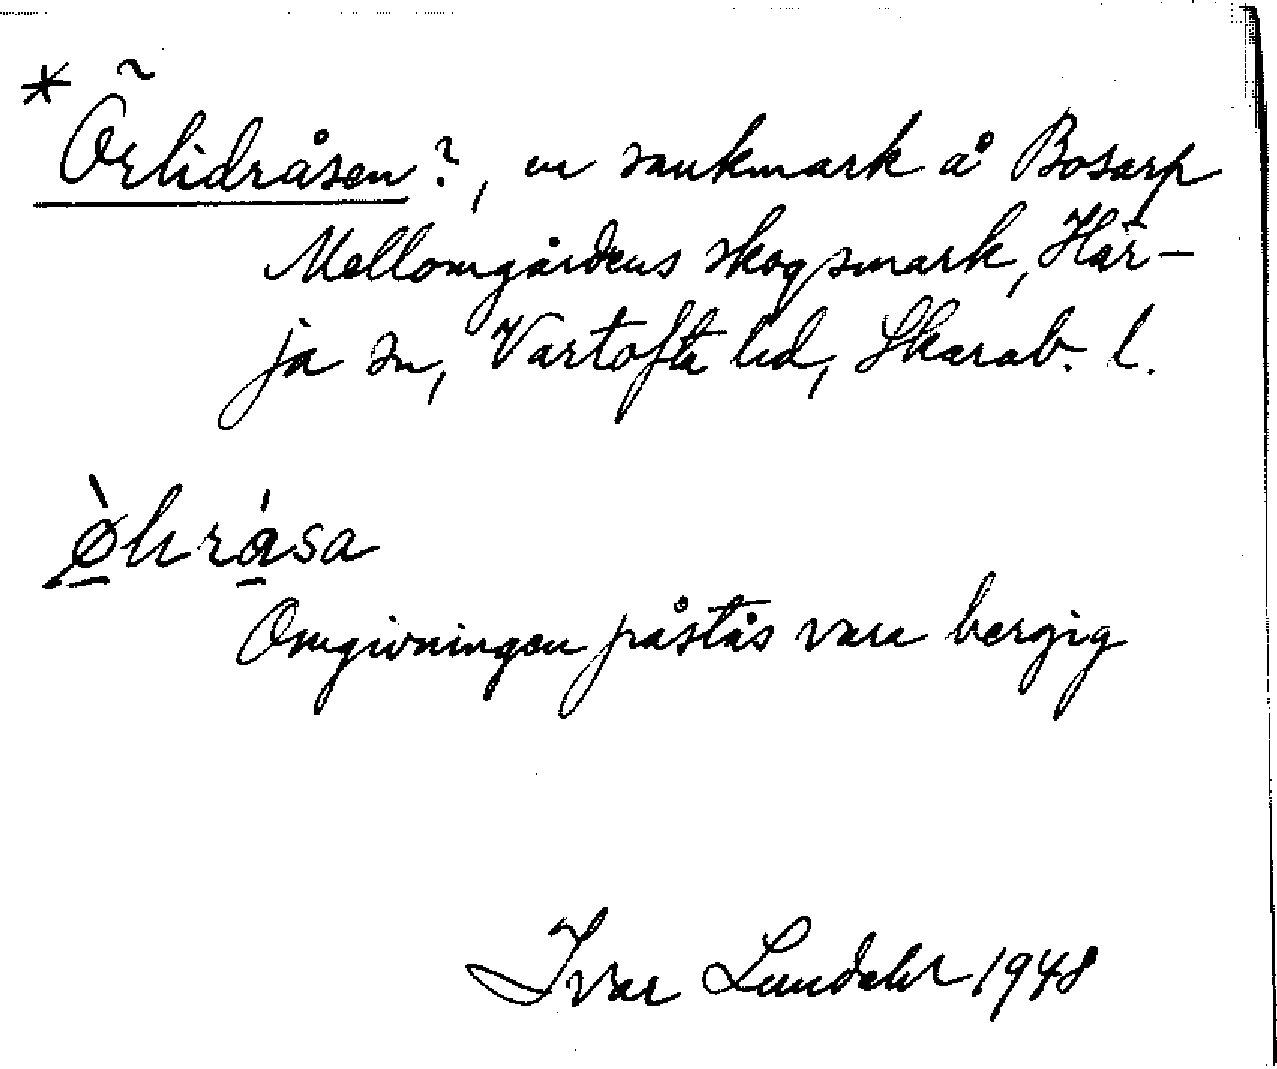 * Örlidråsen?, en sankmark å Bosarp
Mellomgårdens skogsmark, Här-
ja sn, Vartofta hd, Skarab. l.
Omgivningen påstås vara bergig
Ivar Lundahl 1948